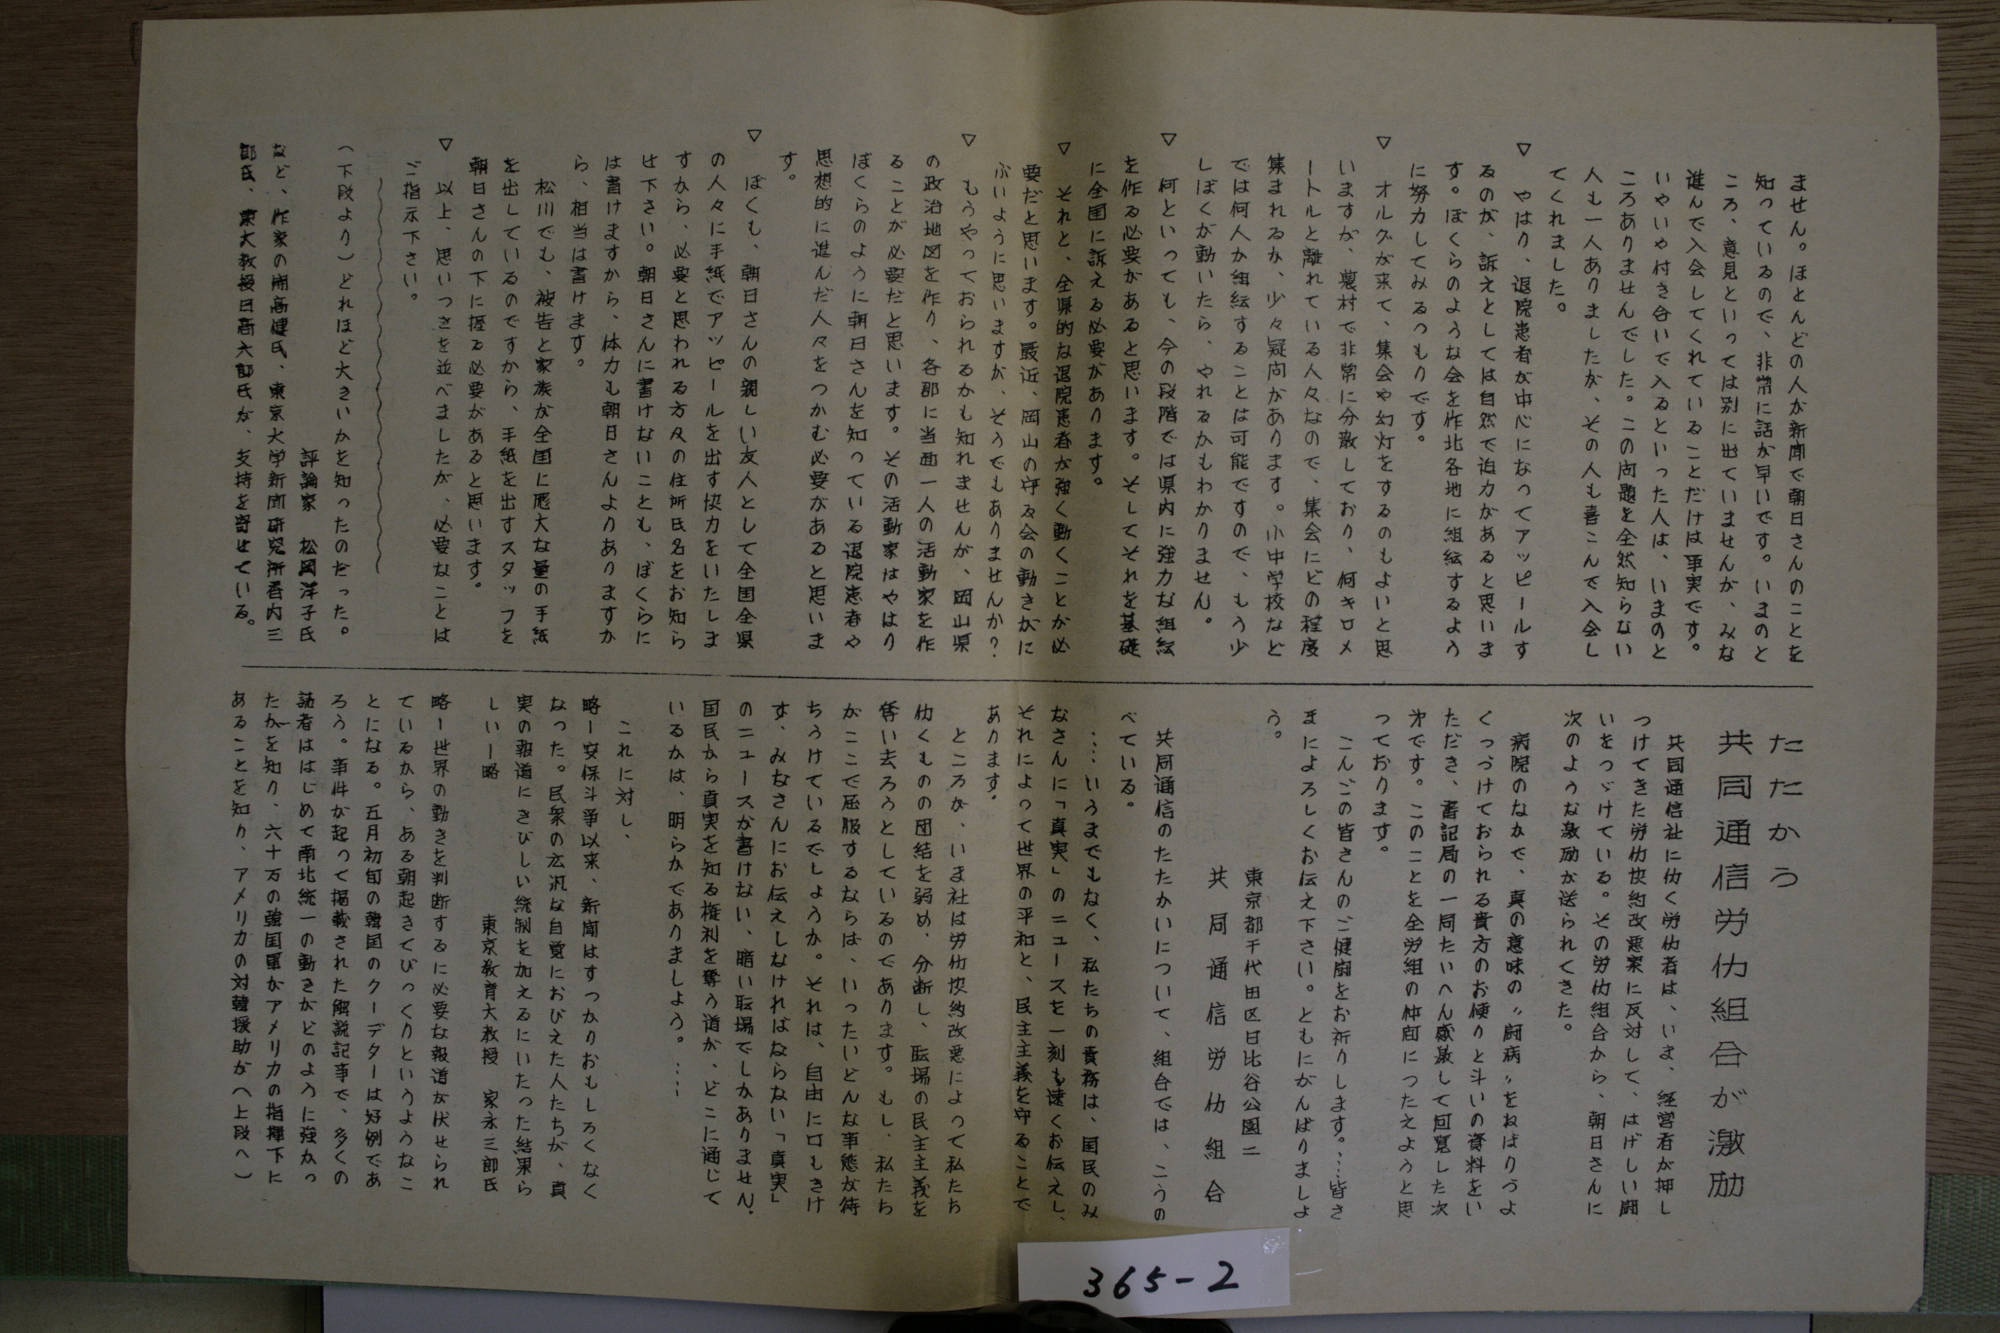 ません。ほとんどの人が新聞で朝日さんのことを
知っているので、非常に話が早いです。いまのと
ころ、意見といっては別に出ていませんが、みな
進んで入会してくれていることだけは事実です。
いやいや付き合いで入るといった人は、いまのと
ころありませんでした。この問題を全然知らない
人も一人ありましたが、その人も喜こんで入会し
てくれました。
▽　やはり、退院患者が中心になってアッピールす
るのが、訴えとしては自然で迫力があると思いま
す。ぼくらのような会を作北各地に組織するよう
に努力してみるつもりです。
▽　オルグが来て、集会や幻灯をするのもよいと思
いますが、農村で非常に分散しており、何キロメ
ートルと離れている人々なので、集会にどの程度
集まれるか、少々疑问があります。小中学校など
では何人か組織することは可能ですので、もう少
しぼくが動いたら、やれるかもわかりません。
▽　何といっても、今の段階では県内に強力な組織
を作る必要があると思います。そしてそれを基礎
に全国に訴える必要があります。
▽　それと、全県的な退院患者が強く動くことが必
要だと思います。最近、岡山の守る会の動きがに
ぶいように思いますが、そうでもありませんか？
▽　もうやっておられるかも知れませんが、岡山県
の政治地図を作り、各郡に当面一人の活動家を作
ることが必要だと思います。その活動家はやはり
ぼくらのように朝日さんを知っている退院患者や
思想的に進んだ人々をつかむ必要があると思いま
す。
▽　ぼくも、朝日さんの親しい友人として全国全県
の人々に手紙でアッピールを出す協力をいたしま
すから、必要と思われる方々の住所氏名をお知ら
せ下さい。朝日さんに書けないことも、ぼくらに
は書けますから、体力も朝日さんよりありますか
ら、相当は書けます。
松川でも、被告と家族が全国に厖大な量の手紙
を出しているのですから、手紙を出すスタッフを
朝日さんの下に握る必要があると思います。
▽　以上、思いつきを並べましたが、必要なことは
ご指示下さい。
（下段より）どれほど大きいかを知ったのだった。
評論家　松岡洋子氏
など、作家の開高健氏、東京大学新聞研究所香内三
郎氏、東大教授日高六郎氏が、支持を寄せている。
たたかう
共同通信労仂組合が激励
共同通信社に仂く労仂者は、いま、経営者が押し
つけてきた労仂協約改悪案に反対して、はげしい闘
いをつゞけている。その労仂組合から、朝日さんに
次のような激励が送られてきた。
病院のなかで、真の意味の〃闘病〃をねばりづよ
くつづけておられる貴方のお便りと斗いの資料をい
ただき、書記局の一同たいへん感激して回覧した次
㐧です。このことを全労組の仲间につたえようと思
っております。
こんごの皆さんのご健闘をお祈りします。‥‥皆さ
まによろしくお伝え下さい。ともにがんばりましょ
う。
東京都千代田区日比谷公園二
共同通信労仂組合
共同通信のたたかいについて、組合では、こうの
べている。
‥‥いうまでもなく、私たちの責務は、国民のみ
なさんに「真実」のニュースを一刻も速くお伝えし、
それによって世界の平和と、民主主義を守ることで
あります。
ところが、いま社は労仂協約改悪によって私たち
仂くものの団結を弱め、分断し、転場の民主主義を
奪い去ろうとしているのであります。もし、私たち
がここで屈服するならば、いったいどんな事態が待
ちうけているでしょうか。それは、自由に口もきけ
ず、みなさんにお伝えしなければならない「真実」
のニュースが書けない、暗い転場でしかありません。
国民から真実を知る権利を奪う道が、どこに通じて
いるかは、明らかでありましよう。‥‥
これに対し、
略ー安保斗争以来、新聞はすっかりおもしろくなく
なった。民衆の広汎な自覚におびえた人たちが、真
実の報道にきびしい統制を加えるにいたった結果ら
しいー略
東京教育大教授　家永三郎氏
略ー世界の動きを判断するに必要な報道が伏せられ
ているから、ある朝起きてびっくりというようなこ
とになる。五月初旬の韓国のクーデターは好例であ
ろう。事件が起って掲載された解説記事で、多くの
読者ははじめて南北統一の動きがどのように強かっ
たかを知り、六十万の韓国軍がアメリカの指揮下に
あることを知り、アメリカの対韓援助が（上段へ）
365-2